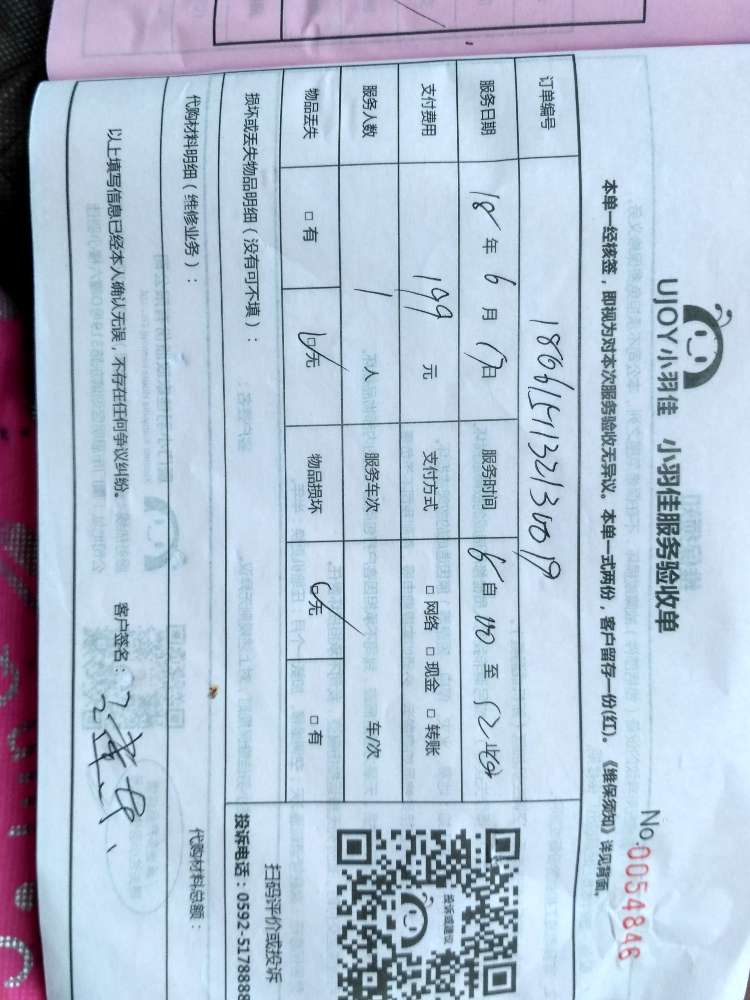 UJOY小羽佳 小羽佳服务验收单
No.0054846
本单一经核签，即视为对本次服务验收无异议。本单一式两份，客户留存一份(红)。《维保须知》详见背面。
订单编号
服务日期 18年6月17日 服务时间 自 至 止
支付费用 199元 支付方式 □网络 □现金 □转账
服务人数 1 人 服务车次 车/次
物品丢失 □有 ☑无 物品损坏 ☑无 □有
损坏或丢失物品明细（没有可不填）：
投诉或建议
扫码评价或投诉
投诉电话：0592-5178888
代购材料明细（维修业务）： 代购材料总额：
以上填写信息已经本人确认无误，不存在任何争议纠纷。 客户签名：